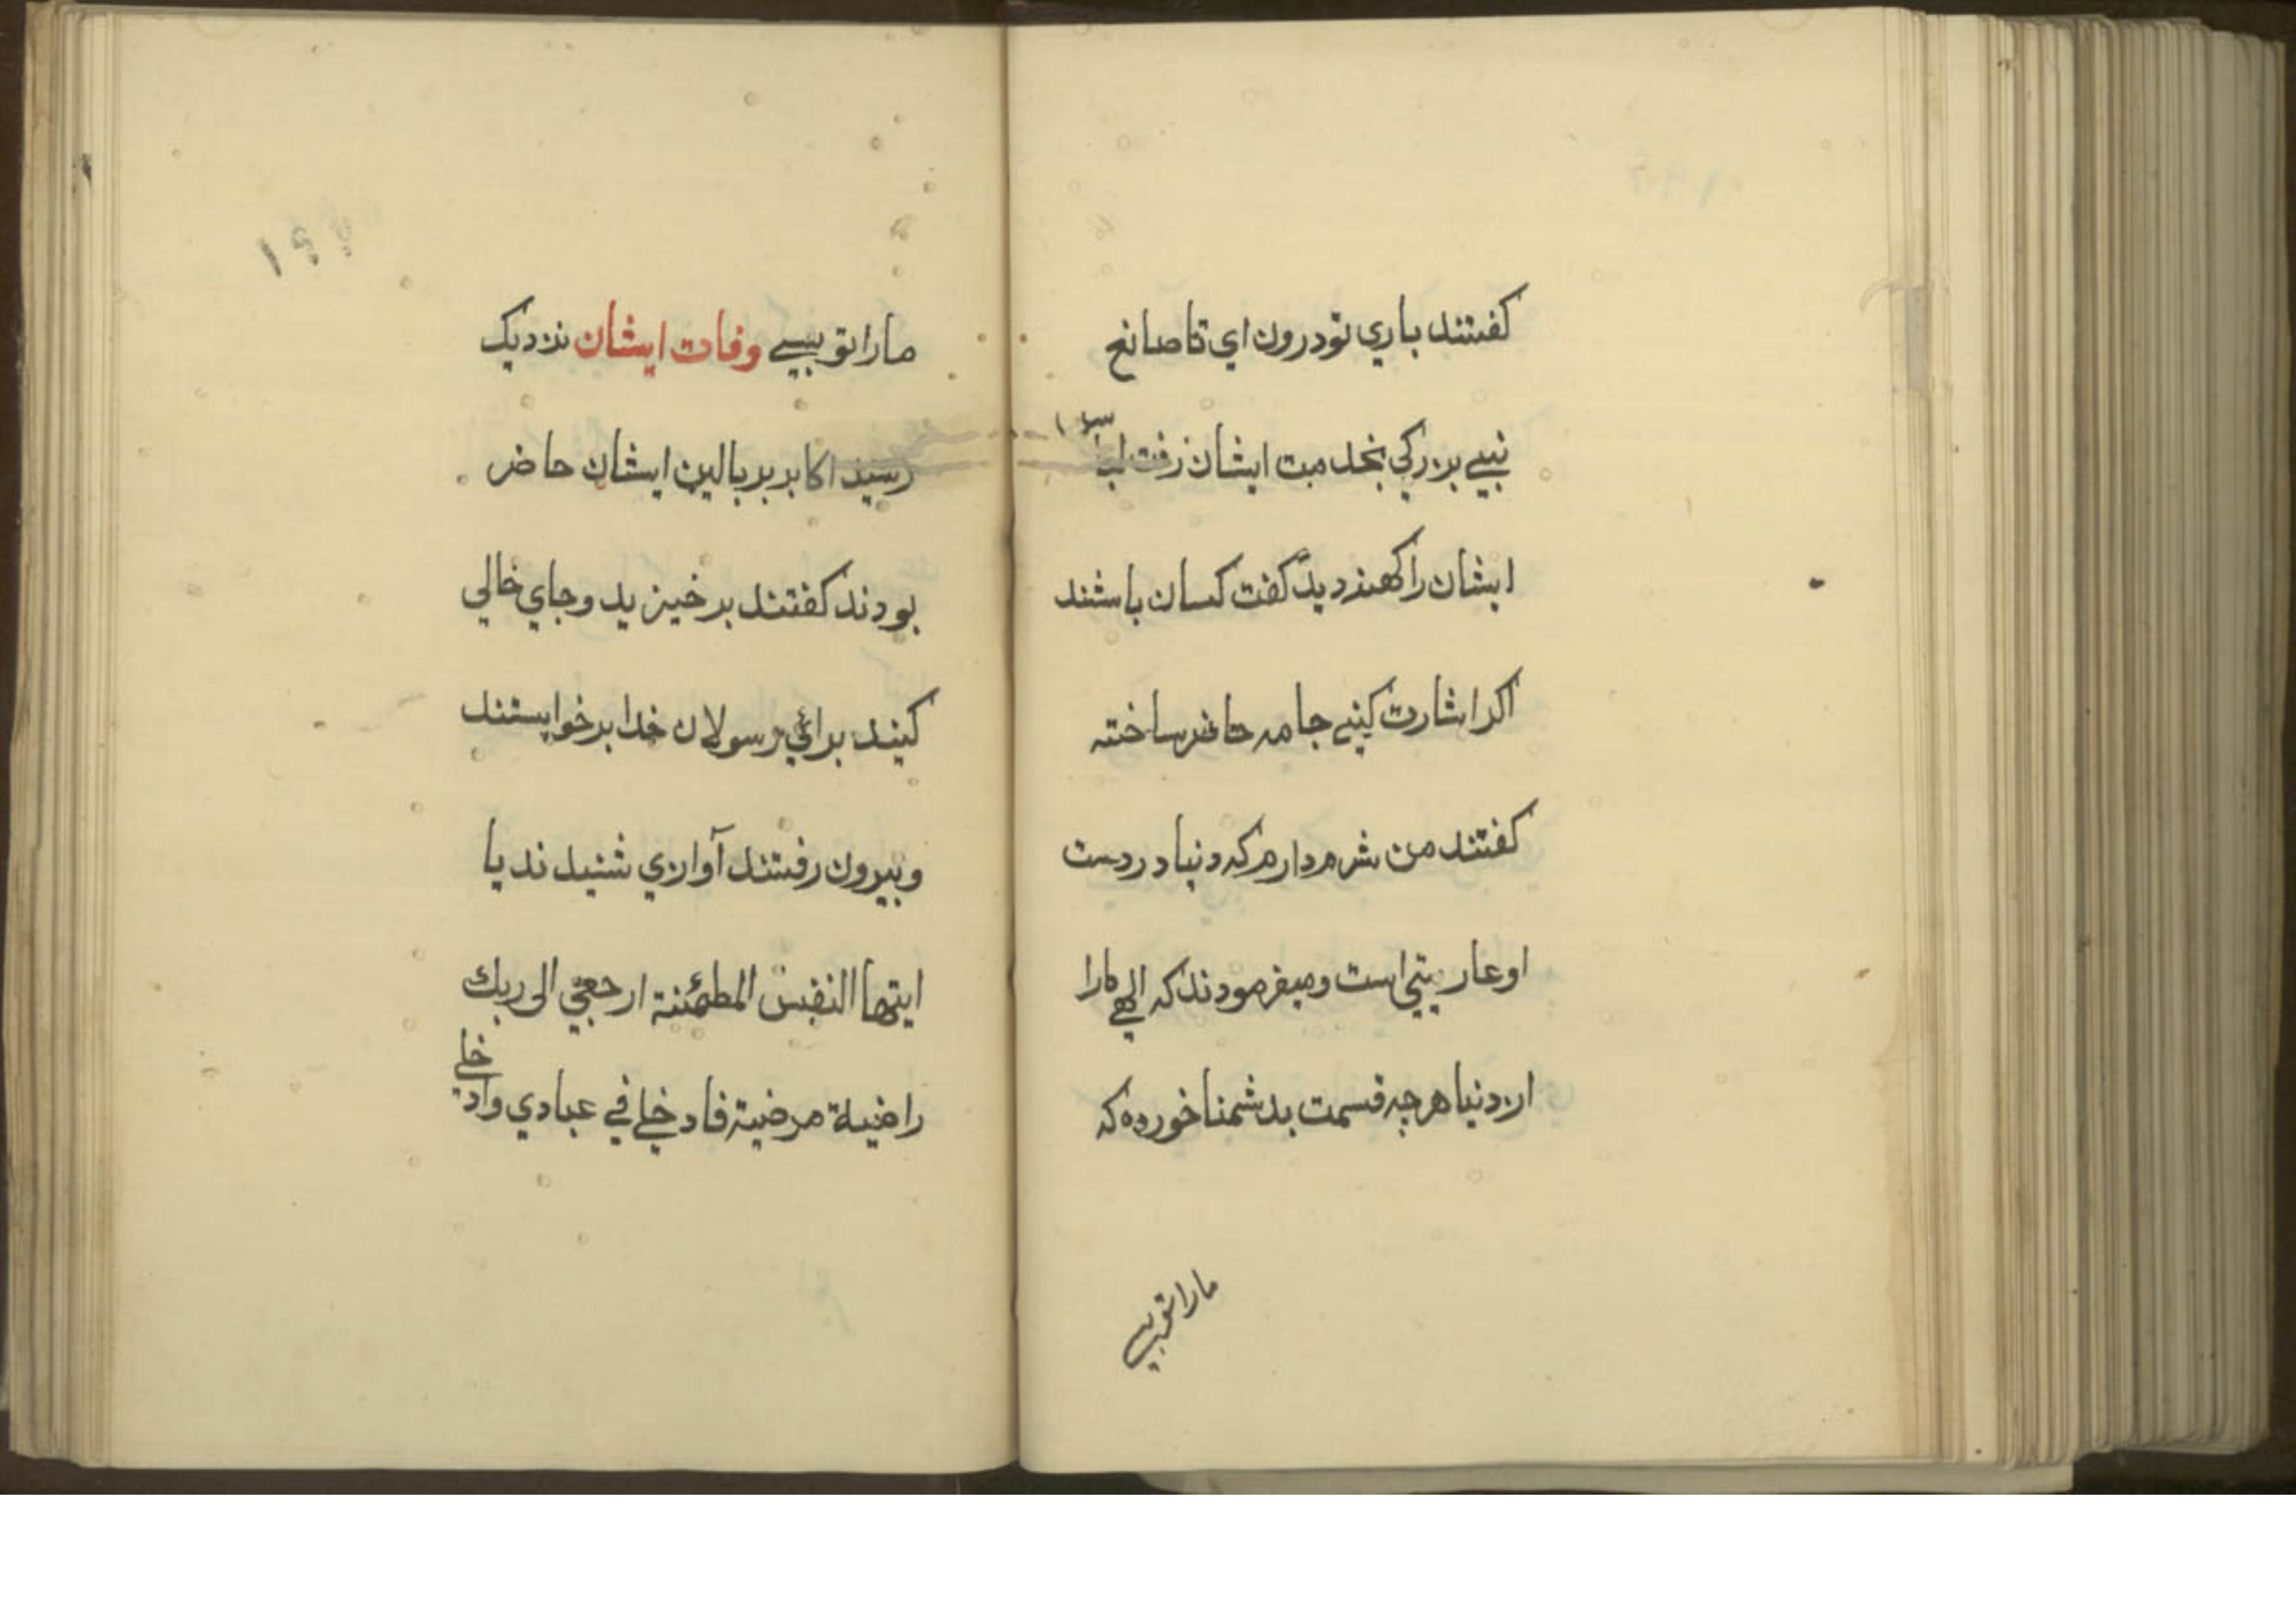 كفتند باري تو درون اي تا صانع
بيني بزركي بخدمت ايشان رفت لباس
ايشان را كهنه ديد گفت كسان باشند
اكر اشارت كني جامه حاضر ساخته
كفتند من شرم دارم كه دنيا در دست
او عاريتي است و ميفرمودند كه الهي مارا
از دنيا هر چه قسمت بدشمنا خود ده كه
مارا تو بسي
مارا تو بسي وفات ايشان نزديك
رسيد اكابر بر بالين ايشان حاضر
بودند كفتند برخيزيد و جاي خالي
كنيد براي رسولان خدا برخواستند
و بيرون رفتند آوازي شنيدند يا
ايتها النفس المطمئنة ارجعي الى ربك
راضية مرضية فادخلي في عبادي واد
خلي